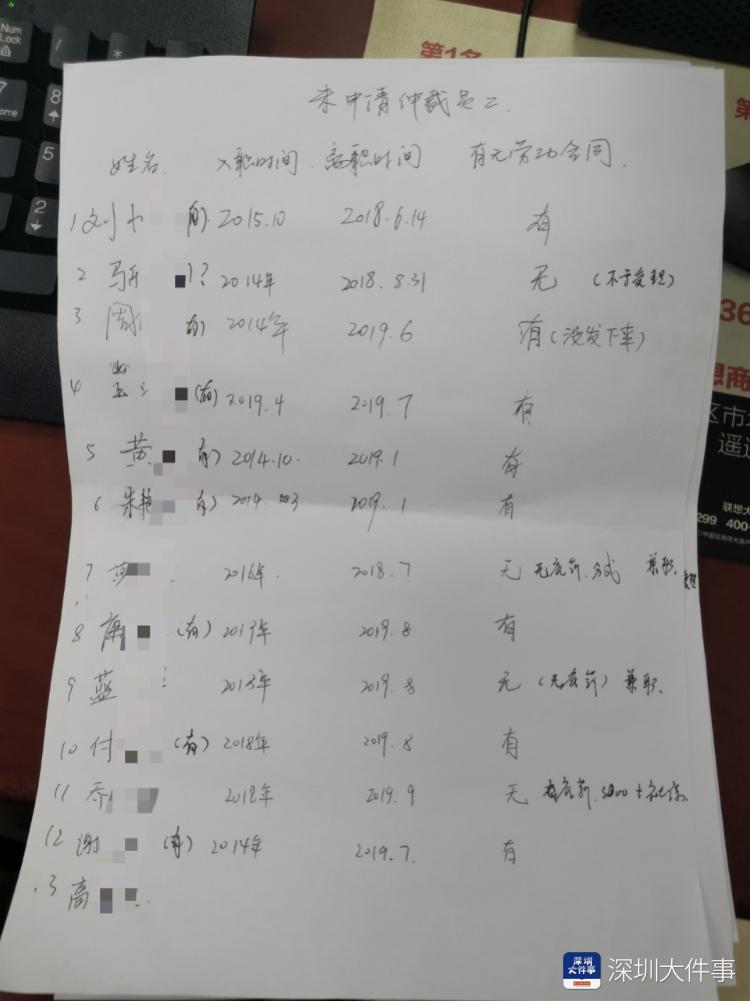 Num
Lock
7
Home
8
5
2
*
/
第1名
第
36
想商
区市
遥
联想大
299 400
未申请仲裁员工.
姓名. 入职时间. 离职时间 有无劳动合同.
1 刘 (有) 2015.10 2018.6.14 有
2 ? 2014年 2018.8.31 无 (不予受理)
3 周 (有) 2014年 2019.6 有(没发下来)
4 (有) 2019.4 2019.7 有
5 黄 有) 2014.10. 2019.1 有
6 朱 有) 2014. 2019.1 有
7 2016年. 2018.7 无 无底薪.分成 兼职.
8 唐 (有) 2017年 2019.8 有
9 蓝 2018年 2019.8 无 (无底薪) 兼职.
10 付 (有) 2018年 2019.8 有
11 乔 2018年 2019.9 无 有底薪.3000+社保.
12 谢 (有) 2014年 2019.7. 有
13 高
深圳
大件事
深圳大件事